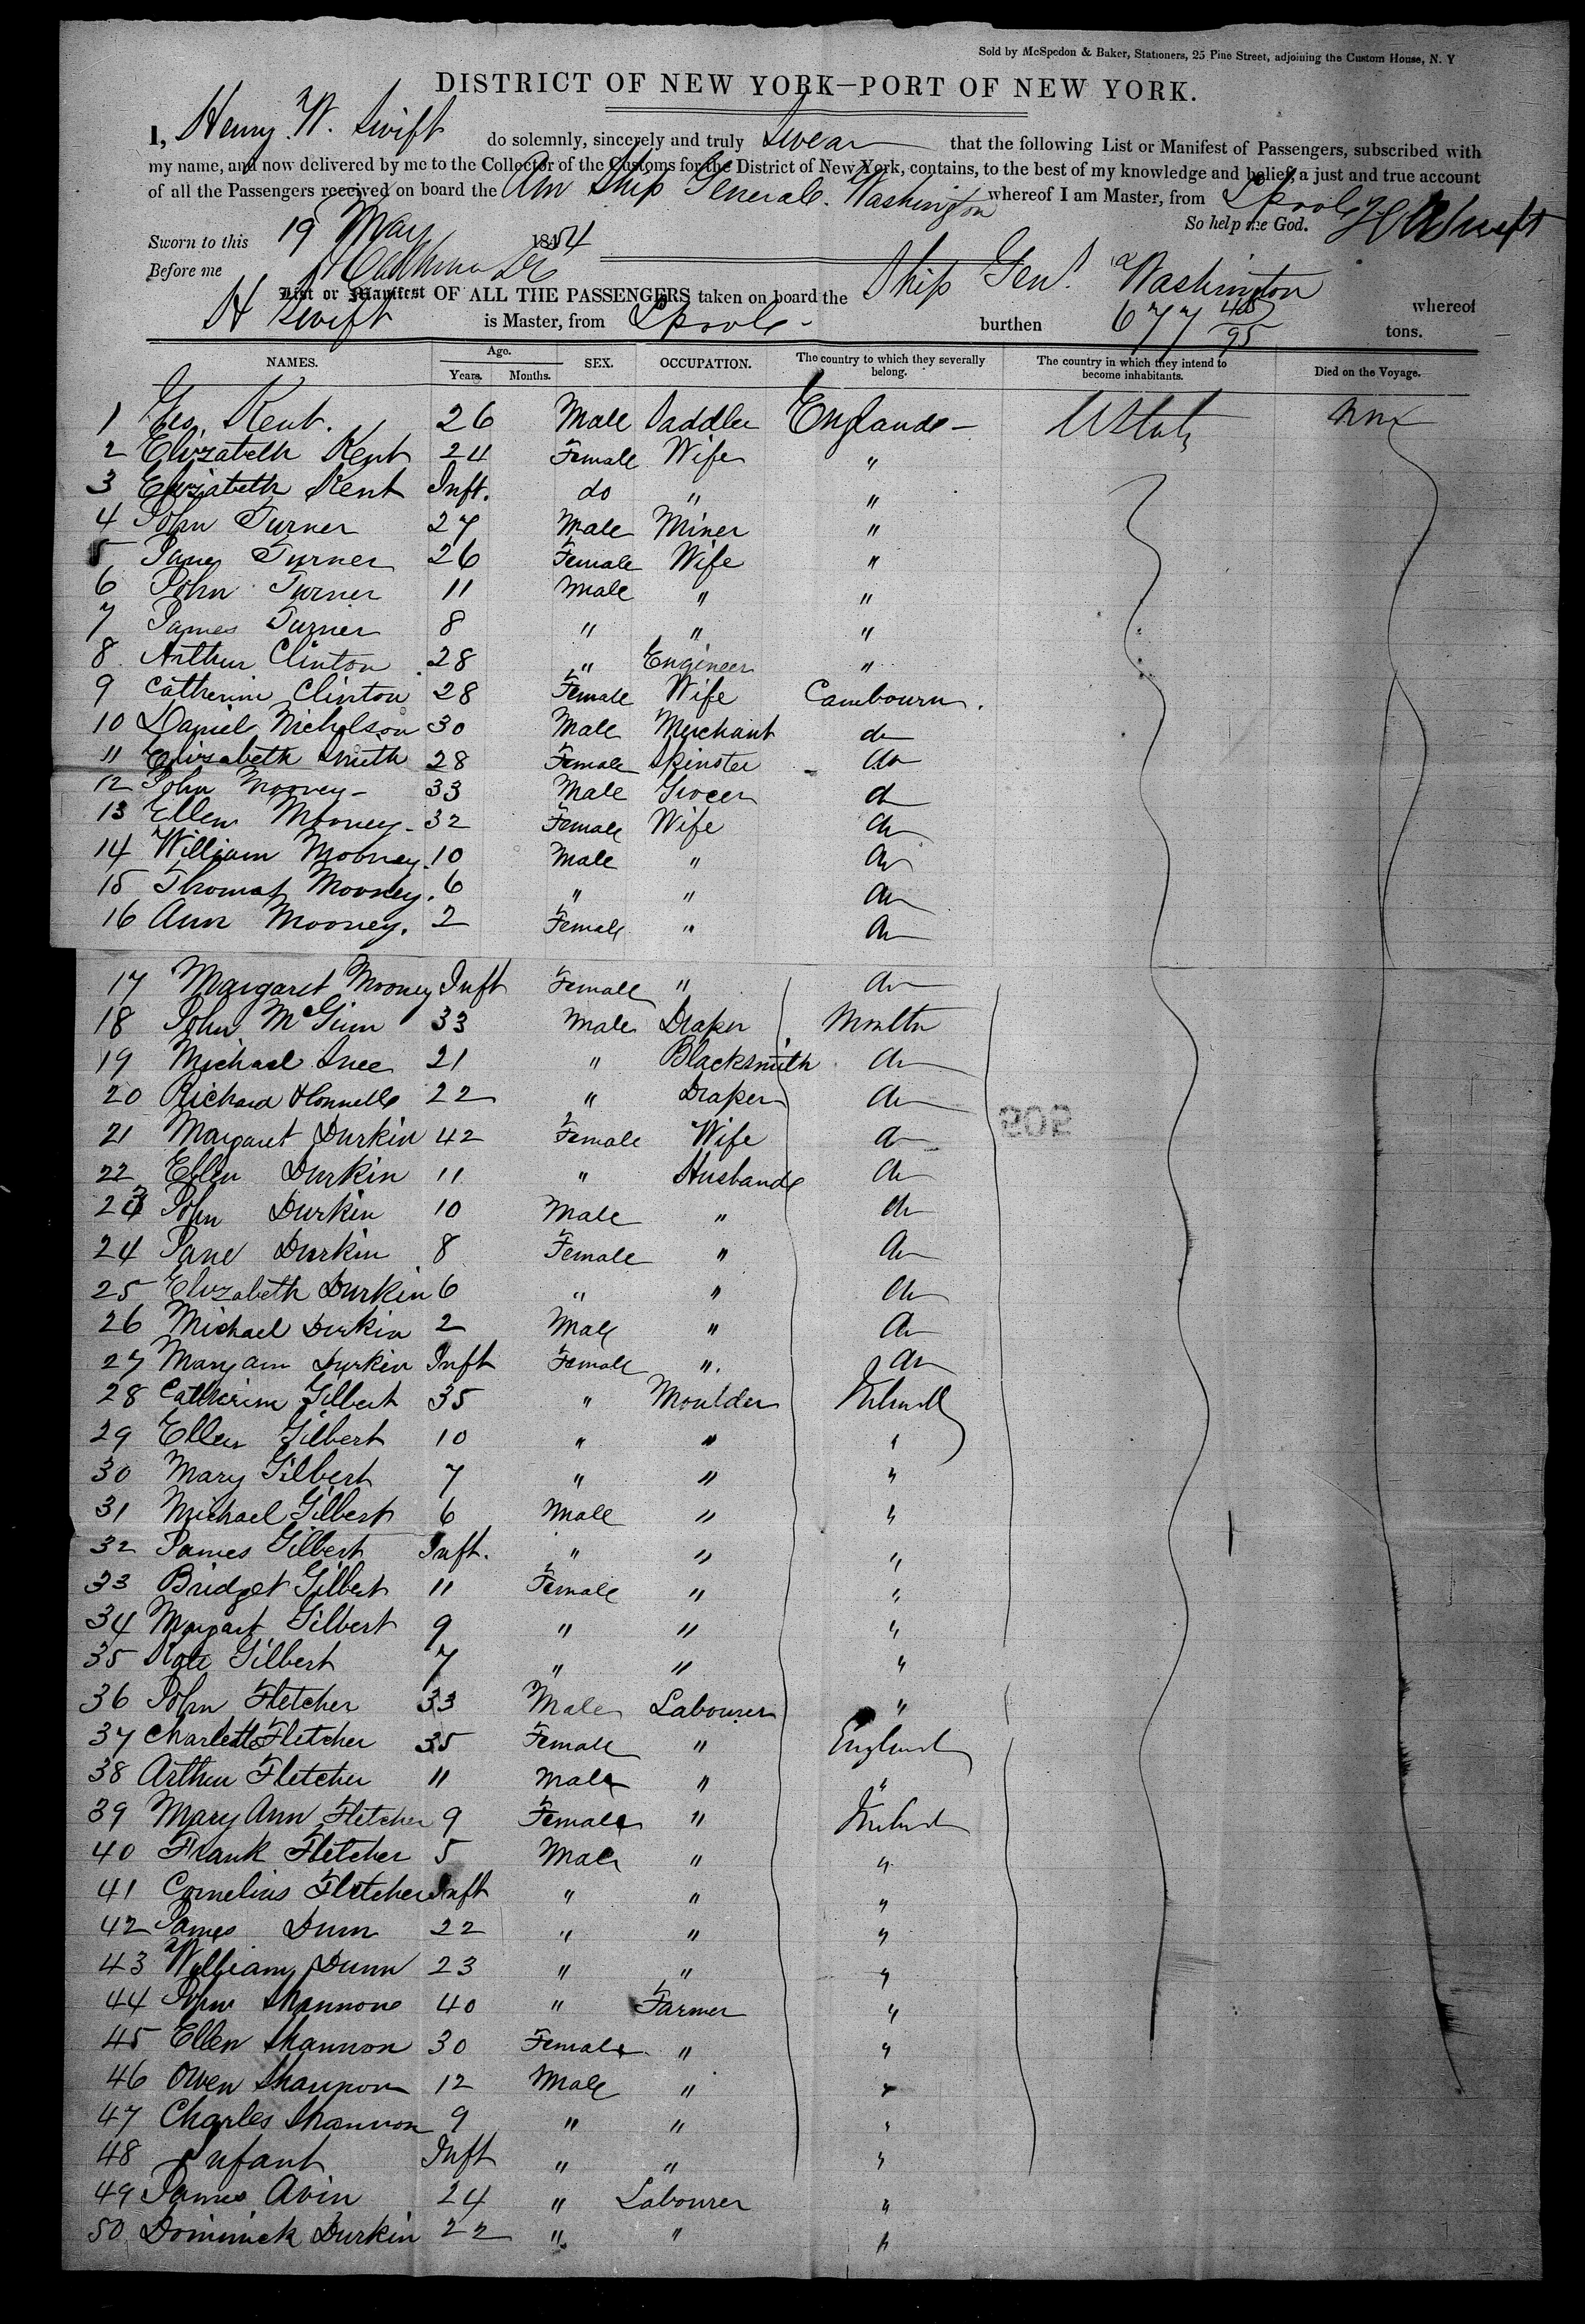 Sold by McSpedon & Baker, Stationers, 25 Pine Street, adjoining the Custom House, N. Y
DISTRICT OF NEW YORK—PORT OF NEW YORK.
I, Henry W. Swift do solemnly, sincerely and truly Swear that the following List or Manifest of Passengers, subscribed with
my name, and now delivered by me to the Collector of the Customs for the District of New York, contains, to the best of my knowledge and belief, a just and true account
of all the Passengers received on board the Am Ship General Washington whereof I am Master, from Lpool
So help me God. H W Swift
Sworn to this 19 May 1854
Before me
List or Manifest OF ALL THE PASSENGERS taken on board the Ship Genl. Washington whereof
H Swift is Master, from Lpool - burthen 677 /95 tons.
NAMES. Age. Years. Months. SEX. OCCUPATION. The country to which they severally belong. The country in which they intend to become inhabitants. Died on the Voyage.
1 Geo. Kent. 26 Male Saddler England - UStates
2 Elizabeth Kent 24 Female Wife "
3 Elizabeth Kent Inft. do " "
4 John Turner 27 Male Miner "
5 Jane Turner 26 Female Wife "
6 John Turner 11 Male " "
7 James Turner 8 " " "
8 Arthur Clinton 28 " Engineer "
9 Catherine Clinton 28 Female Wife Cambourn.
10 Daniel Nicholson 30 Male Merchant do
11 Elizabeth Smith 28 Female Spinster do
12 John Mooney - 33 Male Grocer do
13 Ellen Mooney - 32 Female Wife do
14 William Mooney. 10 Male " do
15 Thomas Mooney. 6 " " do
16 Ann Mooney. 2 Female " do
17 Margaret Mooney Inft Female " do
18 John McGinn 33 Male Draper
19 Michael 21 " Blacksmith do
20 Richard OConnell 22 " Draper do
21 Margaret Durkin 42 Female Wife do
22 Ellen Durkin 11 " Husband do
23 John Durkin 10 Male " do
24 Jane Durkin 8 Female " do
25 Elizabeth Durkin 6 " " do
26 Michael Durkin 2 Male " do
27 Mary ann Durkin Inft Female " do
28 Catherine Gilbert 35 " Moulder Ireland
29 Ellen Gilbert 10 " " "
30 Mary Gilbert 7 " " "
31 Michael Gilbert 6 Male " "
32 James Gilbert Inft. " " "
33 Bridget Gilbert 11 Female " "
34 Margart Gilbert 9 " " "
35 Kate Gilbert 7 " " "
36 John Fletcher 33 Male Labourer "
37 Charlotte Fletcher 35 Female " England
38 Arthur Fletcher 11 Male " "
39 Mary Ann Fletcher 9 Female " Ireland
40 Frank Fletcher 5 Male " "
41 Cornelius Fletcher Inft " " "
42 James Dunn 22 " " "
43 William Dunn 23 " " "
44 John Shannon 40 " Farmer "
45 Ellen Shannon 30 Female " "
46 Owen Shannon 12 Male " "
47 Charles Shannon 9 " " "
48 Infant Inft " " "
49 James Avin 24 " Labourer "
50 Dominick Durkin 22 " " "